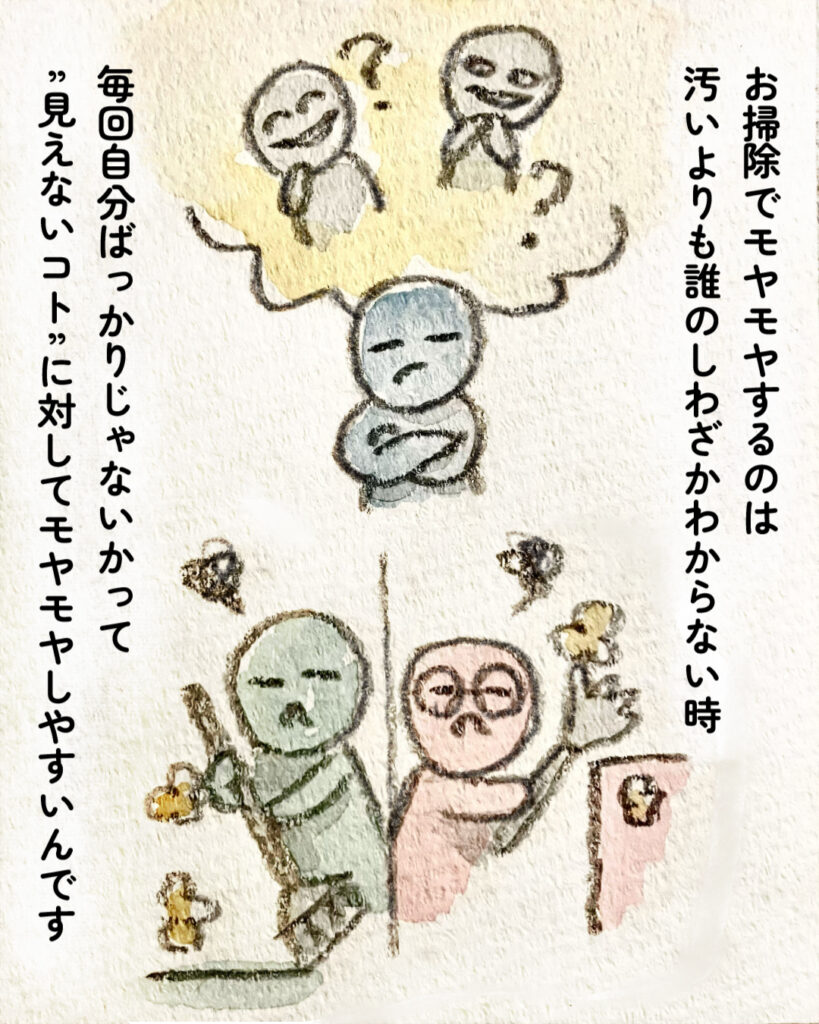 お掃除でモヤモヤするのは
汚いよりも誰のしわざかわからない時
毎回自分ばっかりじゃないかって
”見えないコト”に対してモヤモヤしやすいんです
?
?